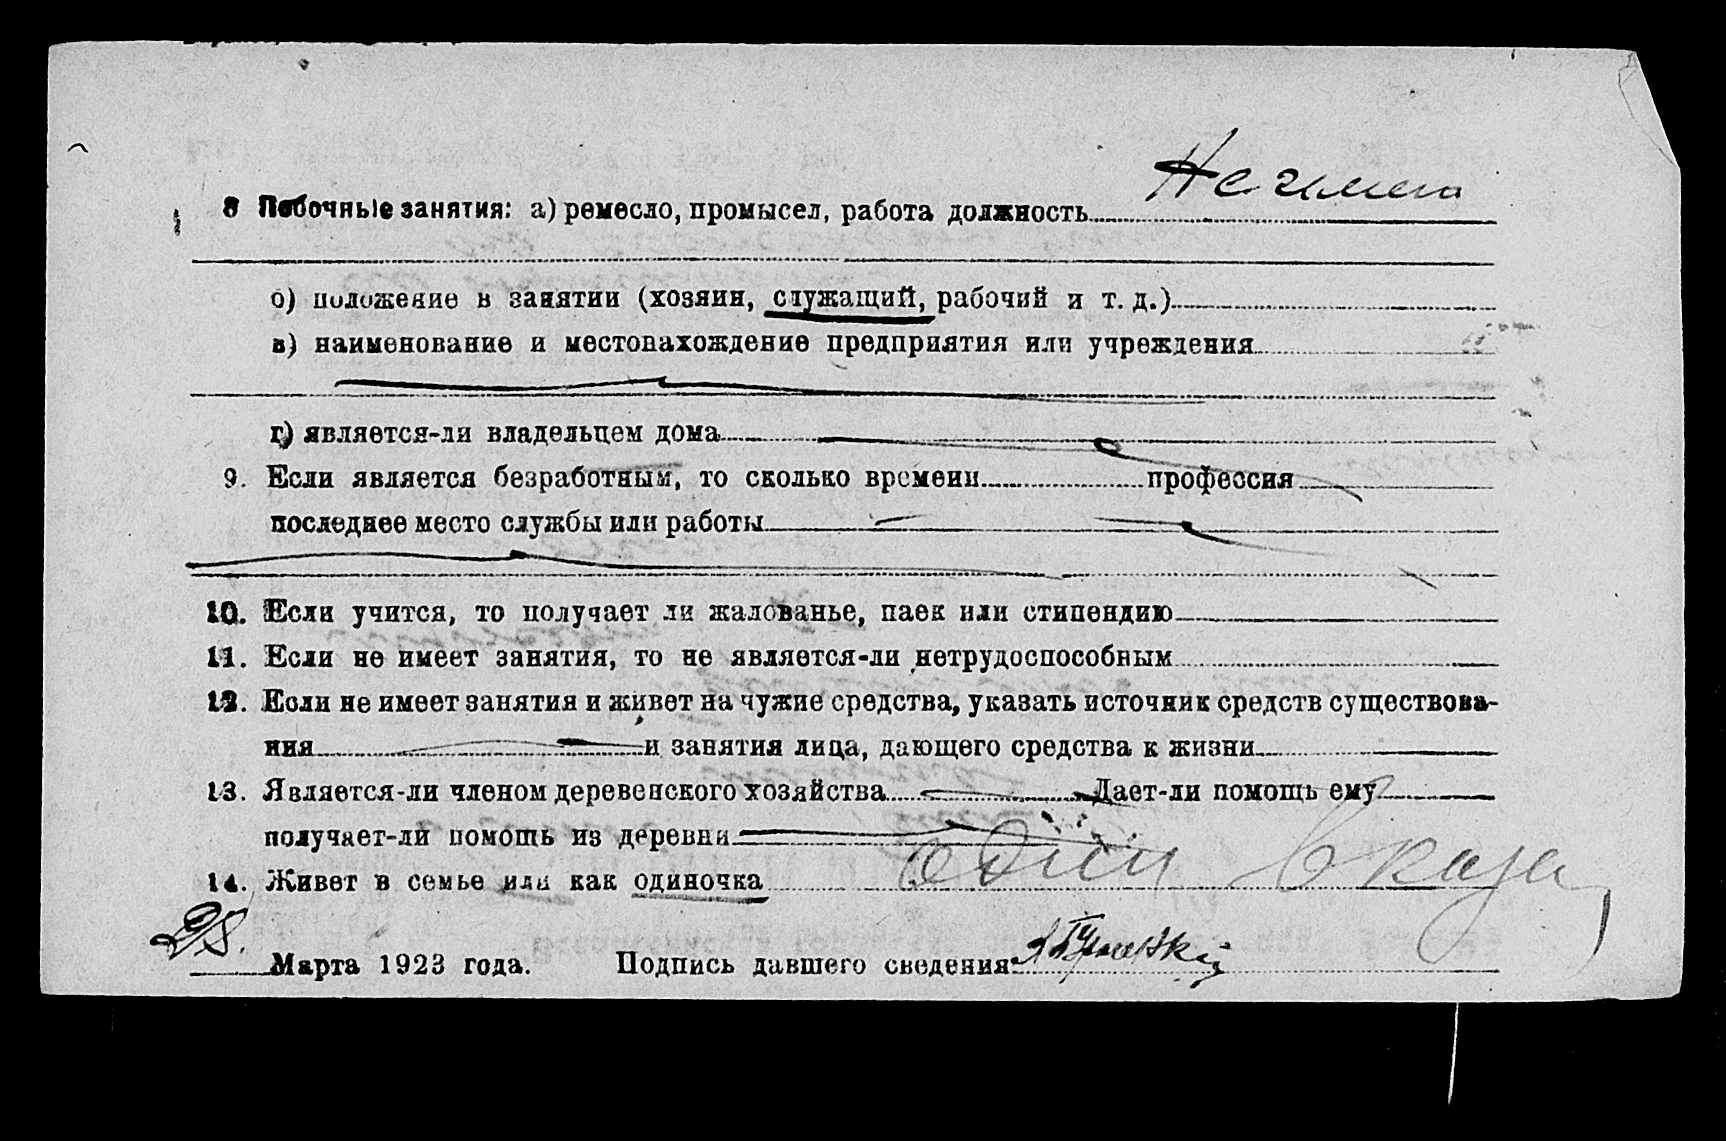 8 Побочные занятия: а) ремесло, промысел, работа должность Не имею
б) положение в занятии (хозяин, служащий, рабочий и т. д.)
в) наименование и местонахождение предприятия или учреждения
г) является-ли владельцем дома
9. Если является безработным, то сколько времени профессия
последнее место службы или работы
10. Если учится, то получает ли жалованье, паек или стипендию
11. Если не имеет занятия, то не является-ли нетрудоспособным
12. Если не имеет занятия и живет на чужие средства, указать источник средств существова-
ния и занятия лица, дающего средства к жизни
13. Является-ли членом деревенского хозяйства Дает-ли помощь ему
получает-ли помощь из деревни
14. Живет в семье или как одиночка один в
28. Марта 1923 года. Подпись давшего сведения